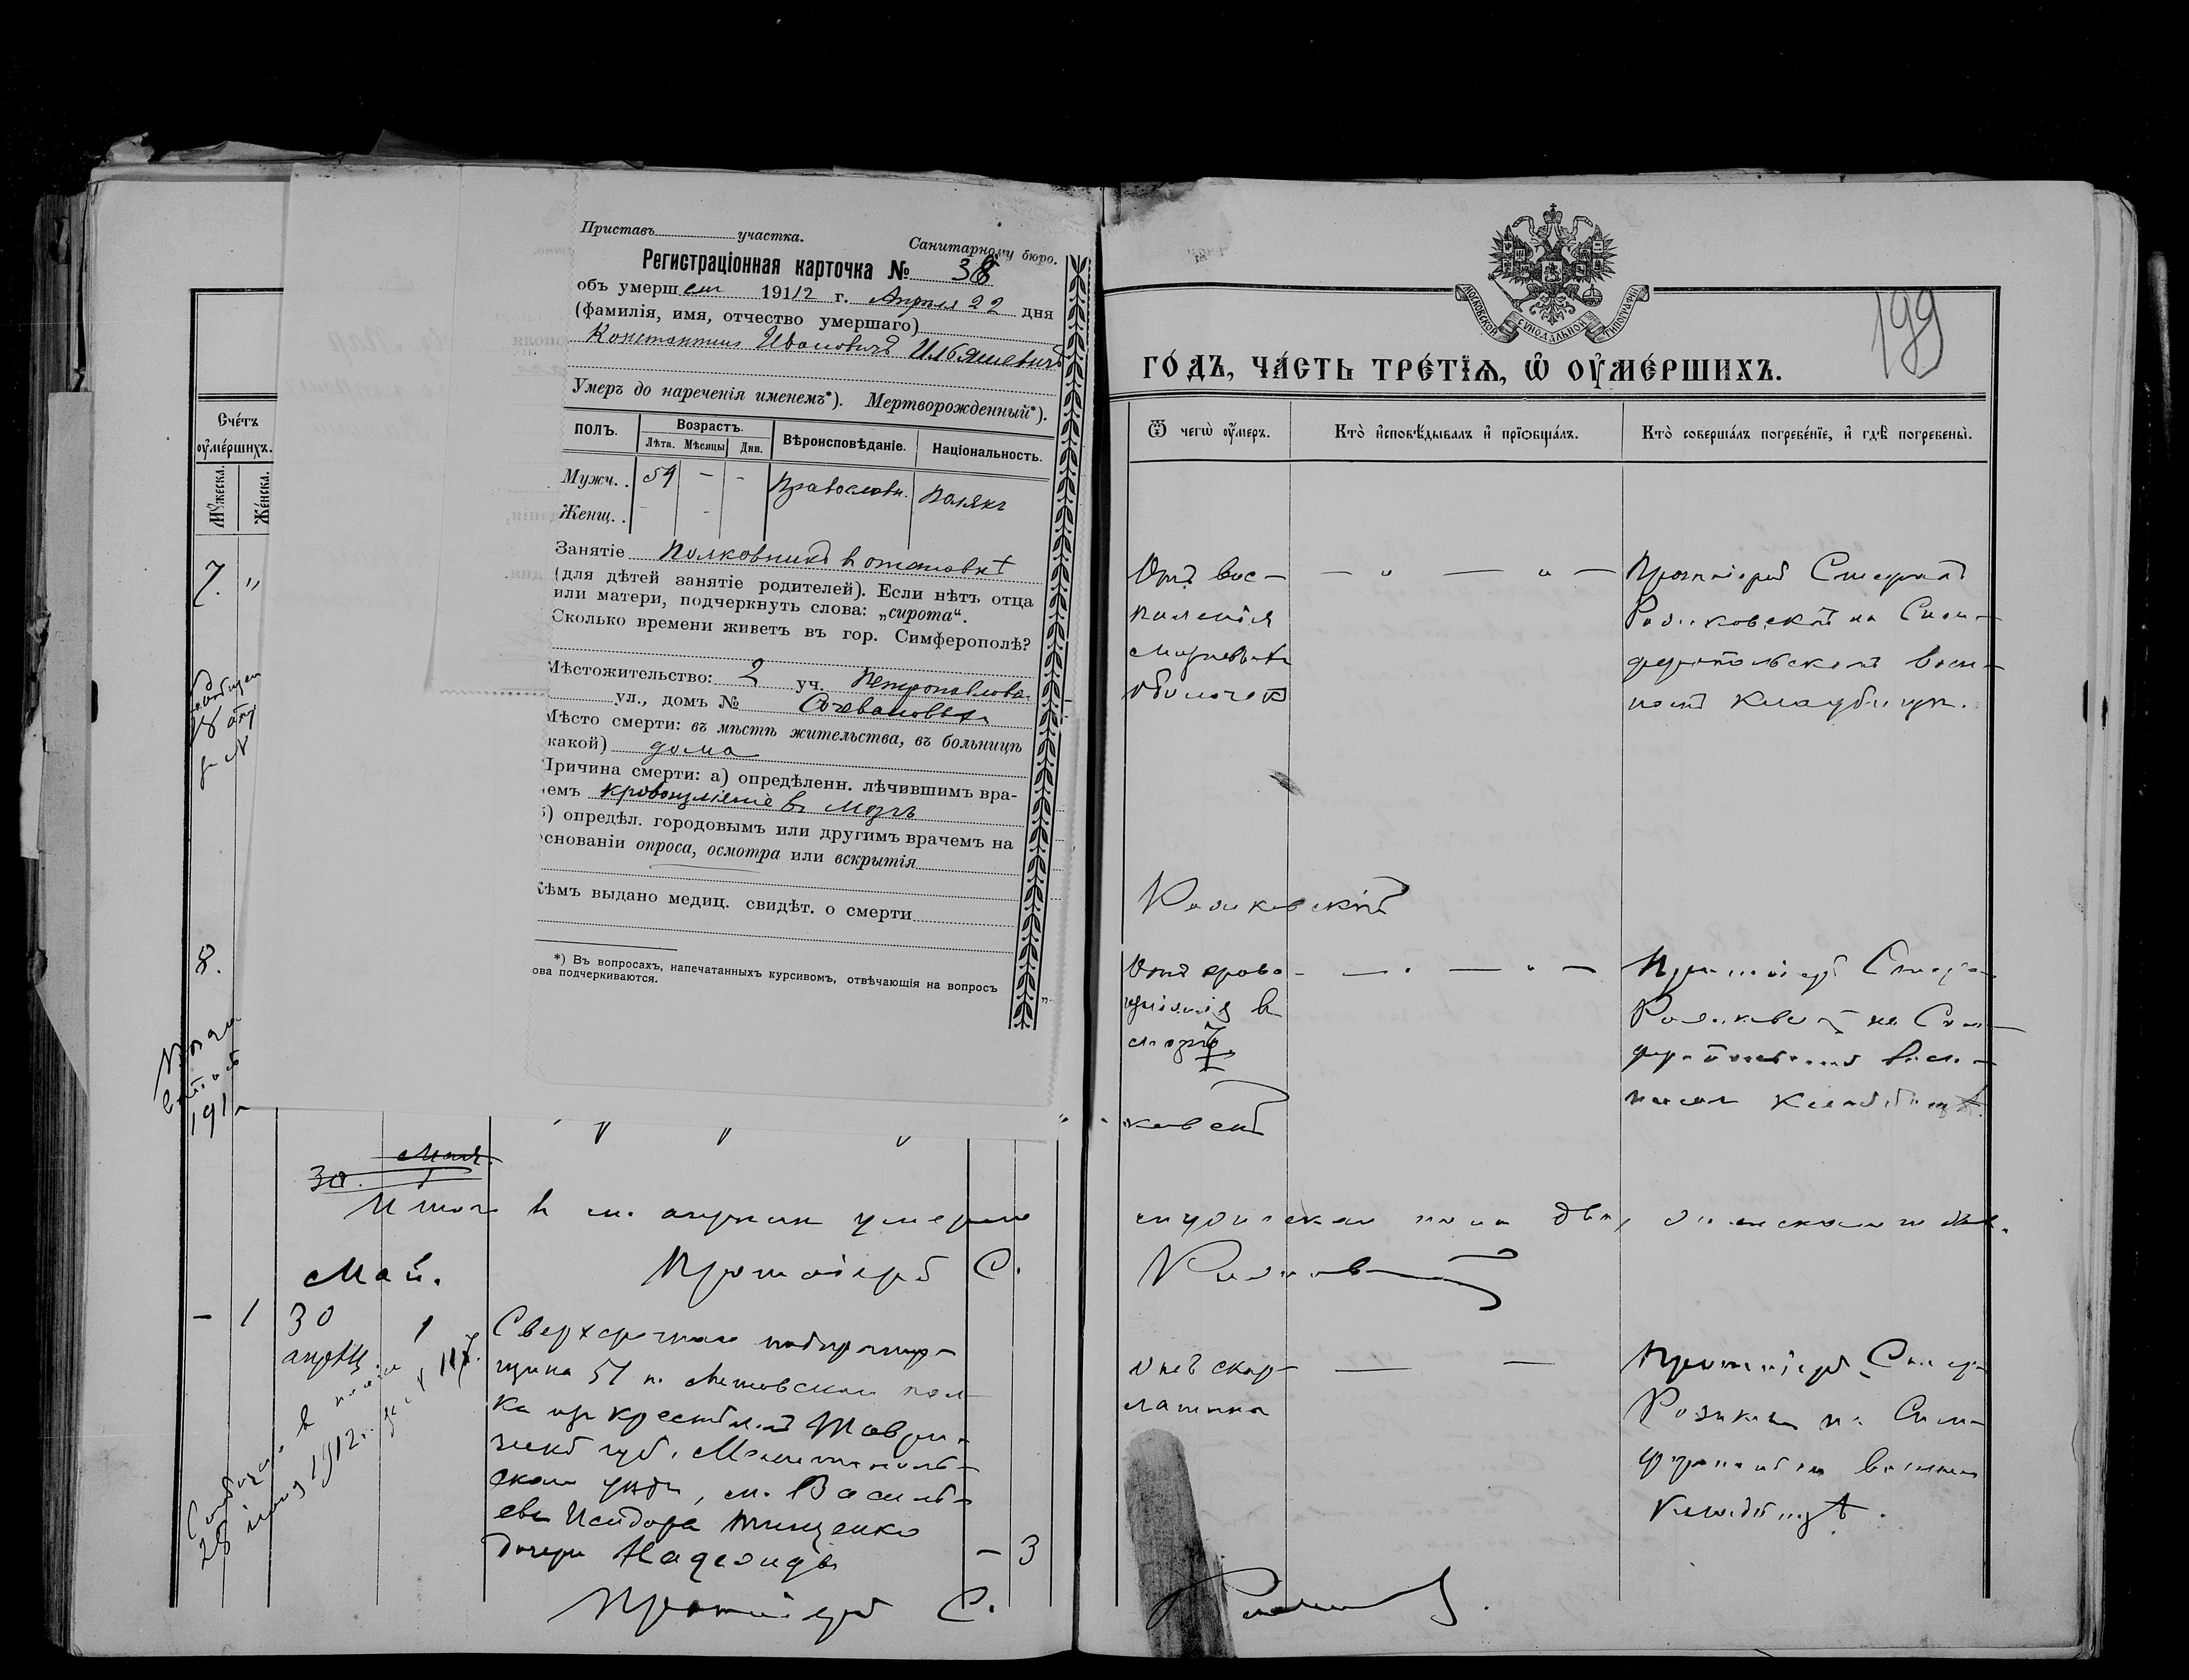 Приставъ участка.
Санитарному бюро.
Регистраціонная карточка № 38
объ умерш 1912 г. Апреля 22 дня
(фамилія, имя, отчество умершаго)
Константинъ Ивановичъ Ильяшевичъ
Умеръ до нареченія именемъ*). Мертворожденный*).
ПОЛЪ. Возрастъ. Вѣроисповѣданіе. Національность.
Лѣта. Мѣсяцы Дни.
Мужч. . 54 - - Православн. Полякъ
Женщ. . - -
Занятіе Полковникъ в отставкѣ
(для дѣтей занятіе родителей). Если нѣтъ отца
или матери, подчеркнуть слова: „сирота“.
Сколько времени живетъ въ гор. Симферополѣ?
Мѣстожительство: 2 уч. Петропавлов.
ул., домъ №
Мѣсто смерти: въ мѣстѣ жительства, въ больницѣ
какой) дома
Причина смерти: а) опредѣленн. лѣчившимъ вра-
емъ кровоизліяніе в мозгъ
) опредѣл. городовымъ или другимъ врачемъ на
основаніи опроса, осмотра или вскрытія
Кѣмъ выдано медиц. свидѣт. о смерти
*) Въ вопросахъ, напечатанныхъ курсивомъ, отвѣчающія на вопросъ
ова подчеркиваются.
Сче́тъ
оу҆ме́ршихъ.
Мꙋ́жеска. Же́нска.
7. "
8.
191
Мая
30.
Итого в м. апрѣлѣ умерло
Май.
Протоіерей С.
- 1 30 1
апрѣля
Сверхсрочнаго подпрапор-
щика 51 п. Литовскаго пол-
ка из крестьянъ Таври-
ческ. губ., Мелитополь-
скаго уѣзда, м. Василь-
евки Исидора Тищенко
дочери Надежда - 3
28 1912 г.
Протоіерей С.
МОСКОВСКОЙ СѴНОДАЛЬНОЙ ТИПОГРАФІИ
199
ГО́ДЪ, ЧА́СТЬ ТРЕ́ТЇѦ, Ѡ҆ ОУ҆МЕ́РШИХЪ.
Ѿ чегѡ̀ оу҆́меръ. Кто̀ и҆сповѣ́дывалъ и҆ прїѡбща́лъ. Кто̀ соверша́лъ погребе́нїе, и҆ гдѣ̀ погребены̀.
Отъ вос-
паленія
мозговыхъ
оболочекъ
Протоіерей Стефанъ
Розиковскій на Сим-
феропольскомъ воен-
номъ кладбищѣ.
Розиковскій
Отъ крово-
изліянія в
мозгъ
Протоіерей Стефан
Розиковскій на Сим-
феропольскомъ воен-
номъ кладбищѣ.
мужского пола два, женскаго
Розиковскій
Отъ скар-
латины
Протоіерей Стеф.
на Сим-
военном
кладбищѣ.